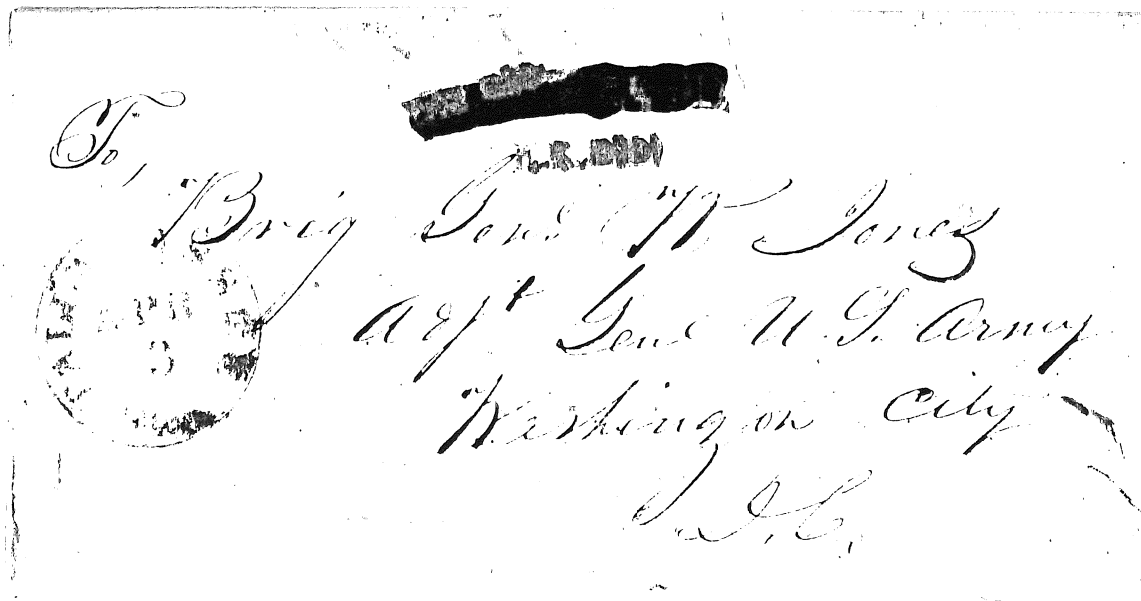 To,
Brig Genl W Jones
Adjt Genl U.S. Army
Washington City
D.C.